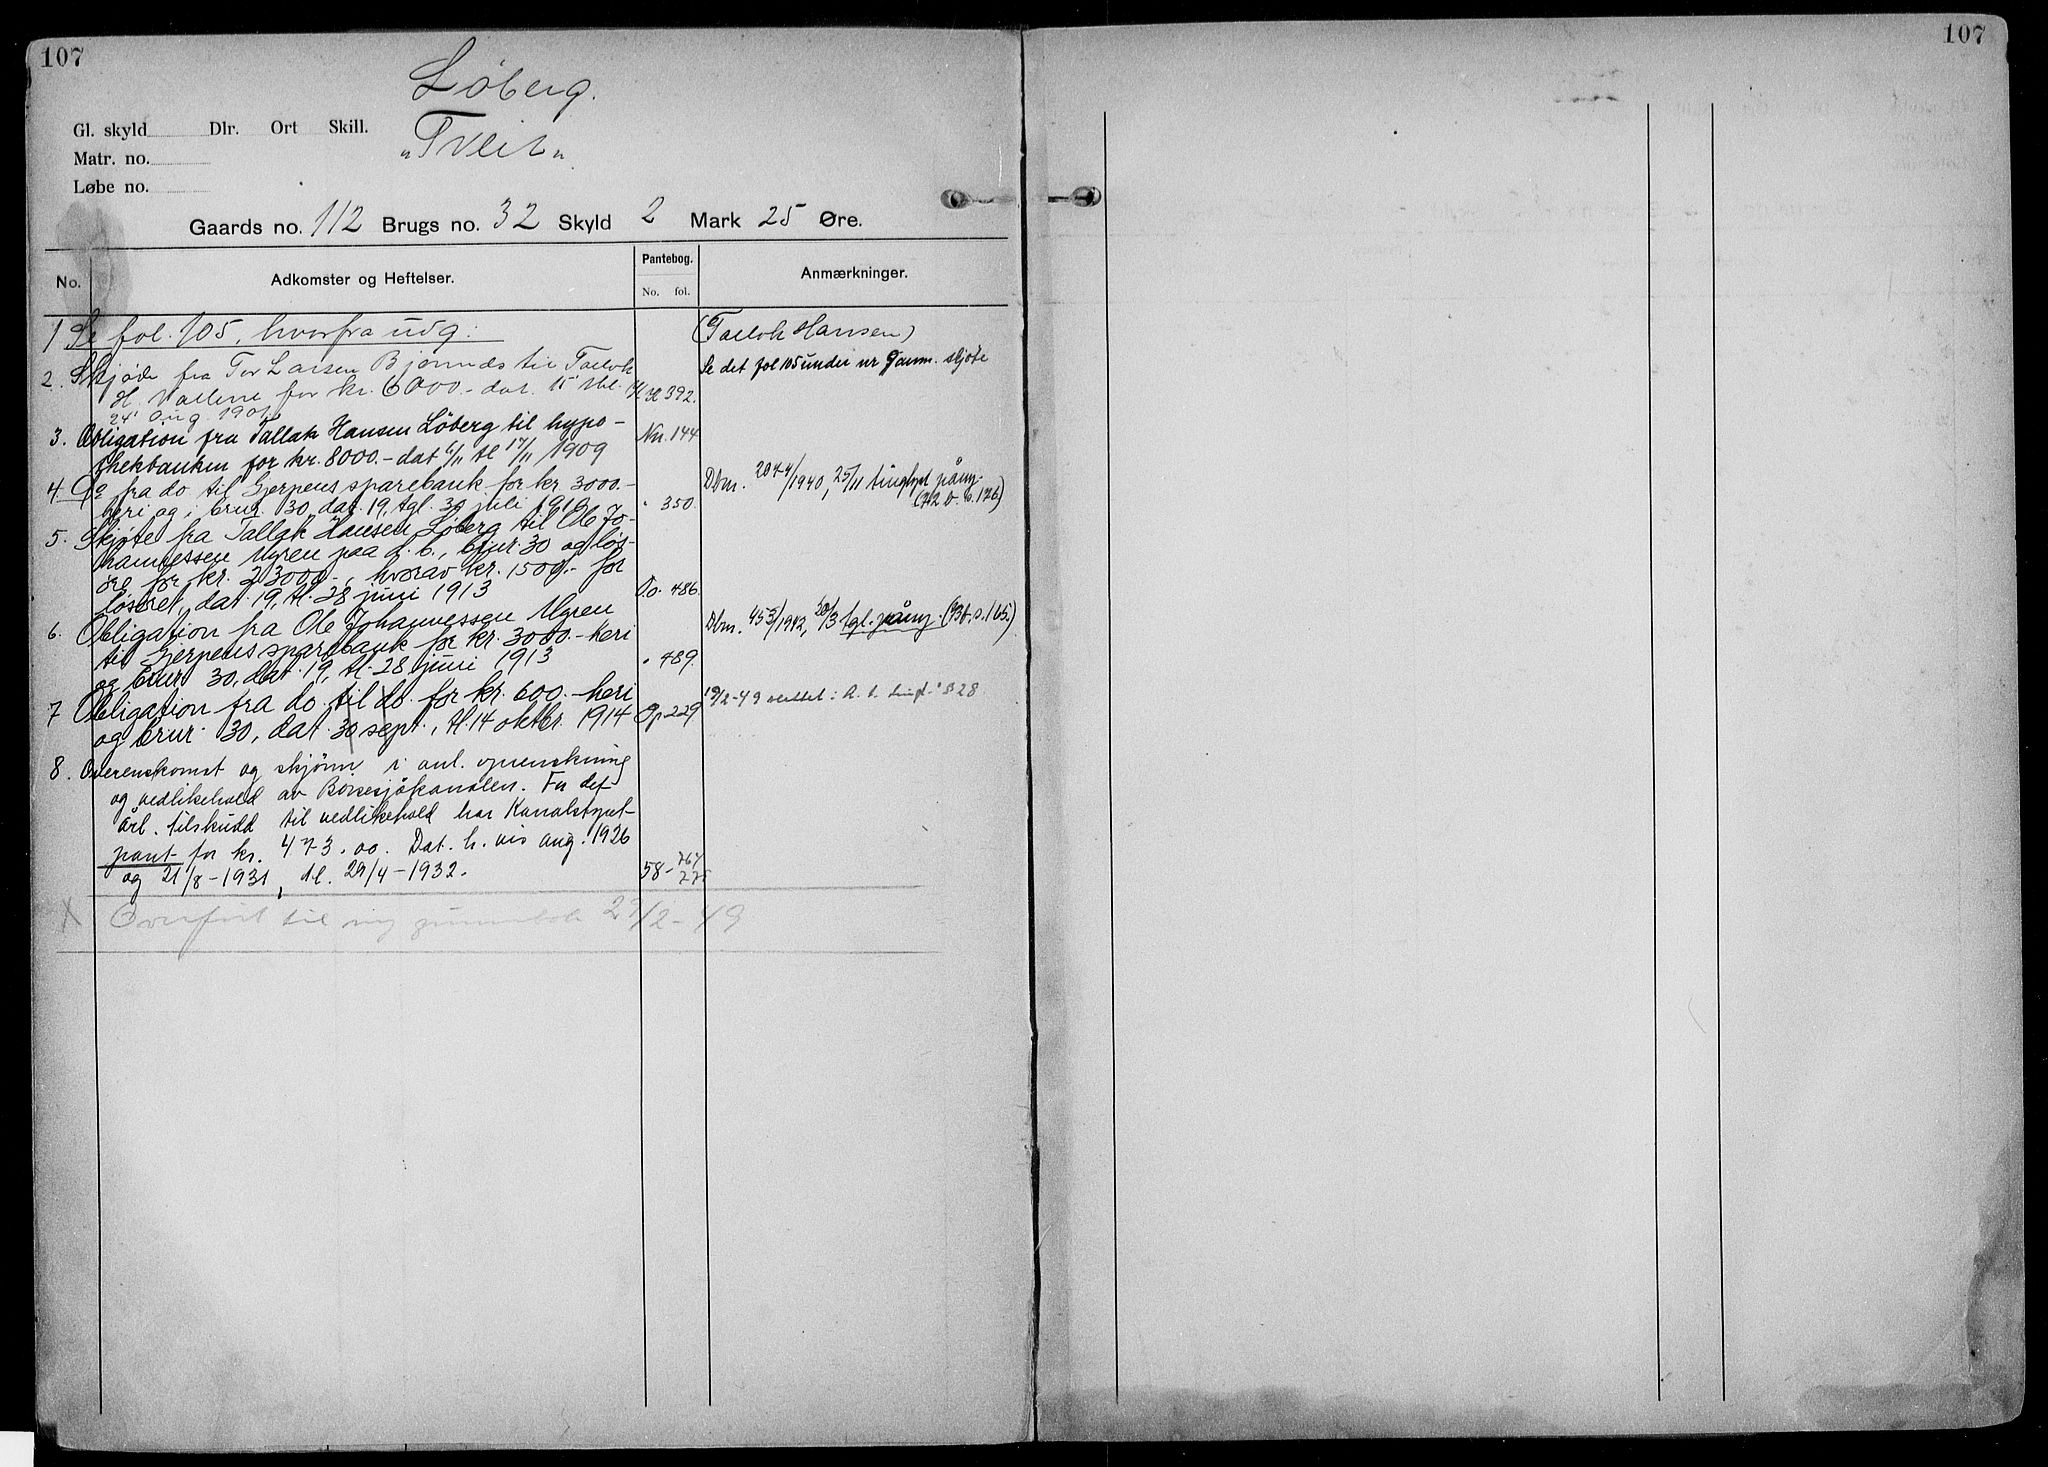 107
107
Løberg.
Gl. skyld Dlr. Ort Skill.
"Tveit"
Matr. no.
Løbe no.
Gaards no. 112 Brugs no. 32 Skyld 2 Mark 25 Øre.
No. Adkomster og Heftelser. Pantebog. No. fol. Anmærkninger.
1 Se fol. 105, hvorfra udg: (Tallok Hansen)
2. Skjøde fra Tor Larsen Bjørnds til Tallok Se det fol 105 under nr skjøte
H. for kr. 6000.- dat. 15 392.
24' Aug. 1901
3. Obligation fra Tallak Hansen Løberg til hypo- Nn. 144
thekbanken for kr. 8000.- dat 6/11 tl 17/11 1909
4. Do fra do til Gjerpens sparebank for kr 3000.- Dbm. 2044/1940, 25/11 tinglyst påny.
heri og i brur 30, dat. 19, tgl. 30 juli 1910 " 350. (H2 b. s. 176)
5. Skjøte fra Tallak Hansen Løberg til Ole Jo-
hannessen Myren paa d. b., brur. 30 og løs-
øre for kr. 23000.-, hvorav kr. 1500.- for
løsøret, dat. 19, tl. 28 juni 1913 Oo. 486.
6. Obligation fra Ole Johannessen Myren Dbm. 453/1942, 20/3 tgl. påny. s. 165.)
til Gjerpens sparebank for kr. 3000.- heri
og brur 30, dat. 19, tl. 28 juni 1913 " 489.
7 Obligation fra do. til do. for kr. 600.- heri 19/2-49 slettet:
og brur. 30, dat. 30 sept., tl. 14 oktbr. 1914 Op 229
8. Overenskomst og skjønn i anl. oprenskning
og vedlikehold av Børsesjøkanalen. For det
årl. tilskudd til vedlikehold har Kanalstyret
pant for kr. 473.00. Dat. h. vis aug. 1926
og 21/8-1931, tl. 29/4-1932. 58- 767
775
X Overført til ny grunnbok 23/2-49